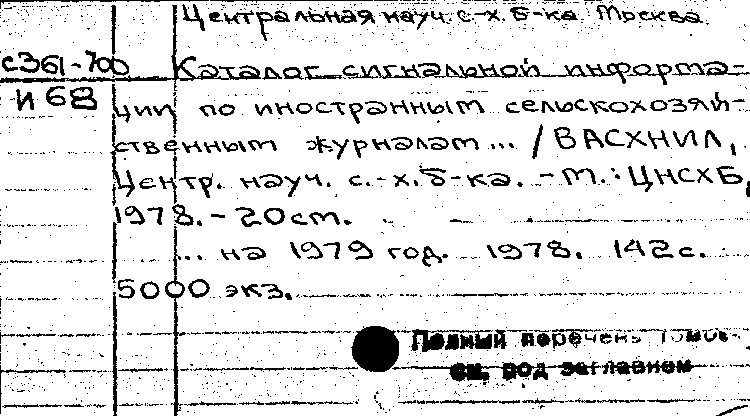 Центральная науч. с-х. б-ка. Москва.
с361-700 Каталог сигнальной информа-
И 68 ции по иностранным сельскохозяй-
ственным журналам... / ВАСХНИЛ,
Центр. науч. с.-х. б-ка. - М.: ЦНСХБ,
1978. - 20 см.
... на 1979 год. 1978. 142 с.
5000 экз.
Полный перечень томов
см. под заглавием